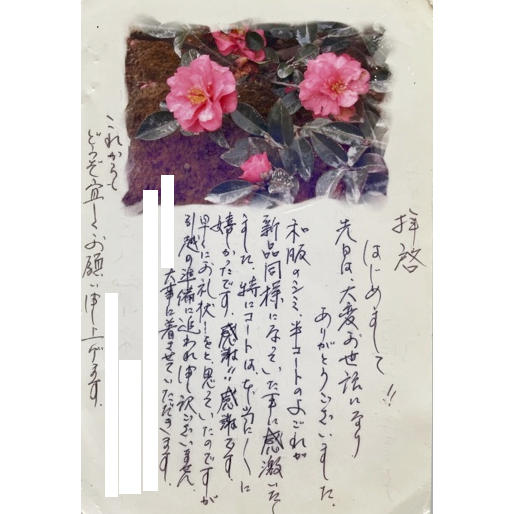 拝啓
はじめまして!!
先日は、大変お世話になり
ありがとうございました。
和服のシミ、半コートのよごれが
新品同様になっていた事に感激いたし
ました。特にコートは、本当に〱に
嬉かったです。感謝!!感謝です。
早くにお礼状をと思っていたのですが
引越の準備に追われ申し訳ございません。
大事に着させていただきます。
これからも
どうぞ宜しくお願い申し上げます。